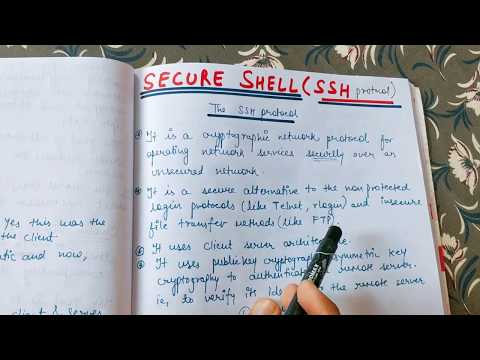 SECURE SHELL (SSH protocol)
The SSH protocol
It is a cryptographic network protocol for
operating network services securely over an
unsecured network.
It is a secure alternative to the non protected
login protocols (like Telnet, rlogin) and insecure
file transfer methods (like FTP).
It uses client server architecture.
It uses public key cryptography asymmetric key
cryptography to authenticate remote server.
ie, to verify its the remote server
Yes this was the
the client.
atic and now,